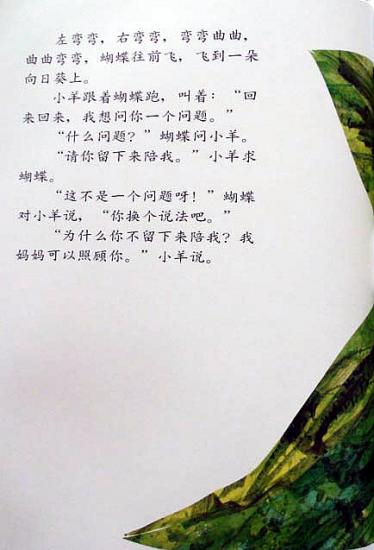 左弯弯，右弯弯，弯弯曲曲，
曲曲弯弯，蝴蝶往前飞，飞到一朵
向日葵上。
小羊跟着蝴蝶跑，叫着：“回
来回来，我想问你一个问题。”
“什么问题？”蝴蝶问小羊。
“请你留下来陪我。”小羊求
蝴蝶。
“这不是一个问题呀！”蝴蝶
对小羊说，“你换个说法吧。”
“为什么你不留下来陪我？我
妈妈可以照顾你。”小羊说。